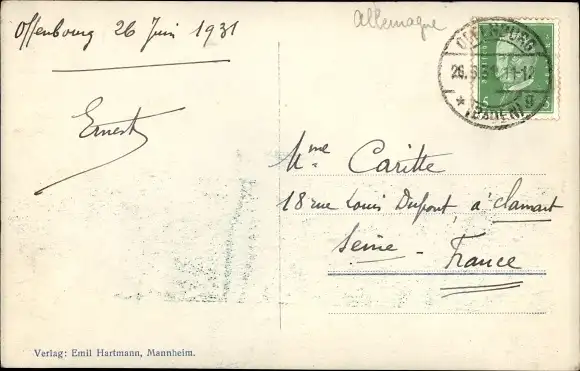 Offenbourg 26 Juin 1931
Allemagne
OFFENBURG
26.6.31. 11-12
* (BADEN) g
5 5
Ernest
Mme Caritte
18 rue Louis Dupont, à Clamart
Seine -
France
Verlag: Emil Hartmann, Mannheim.